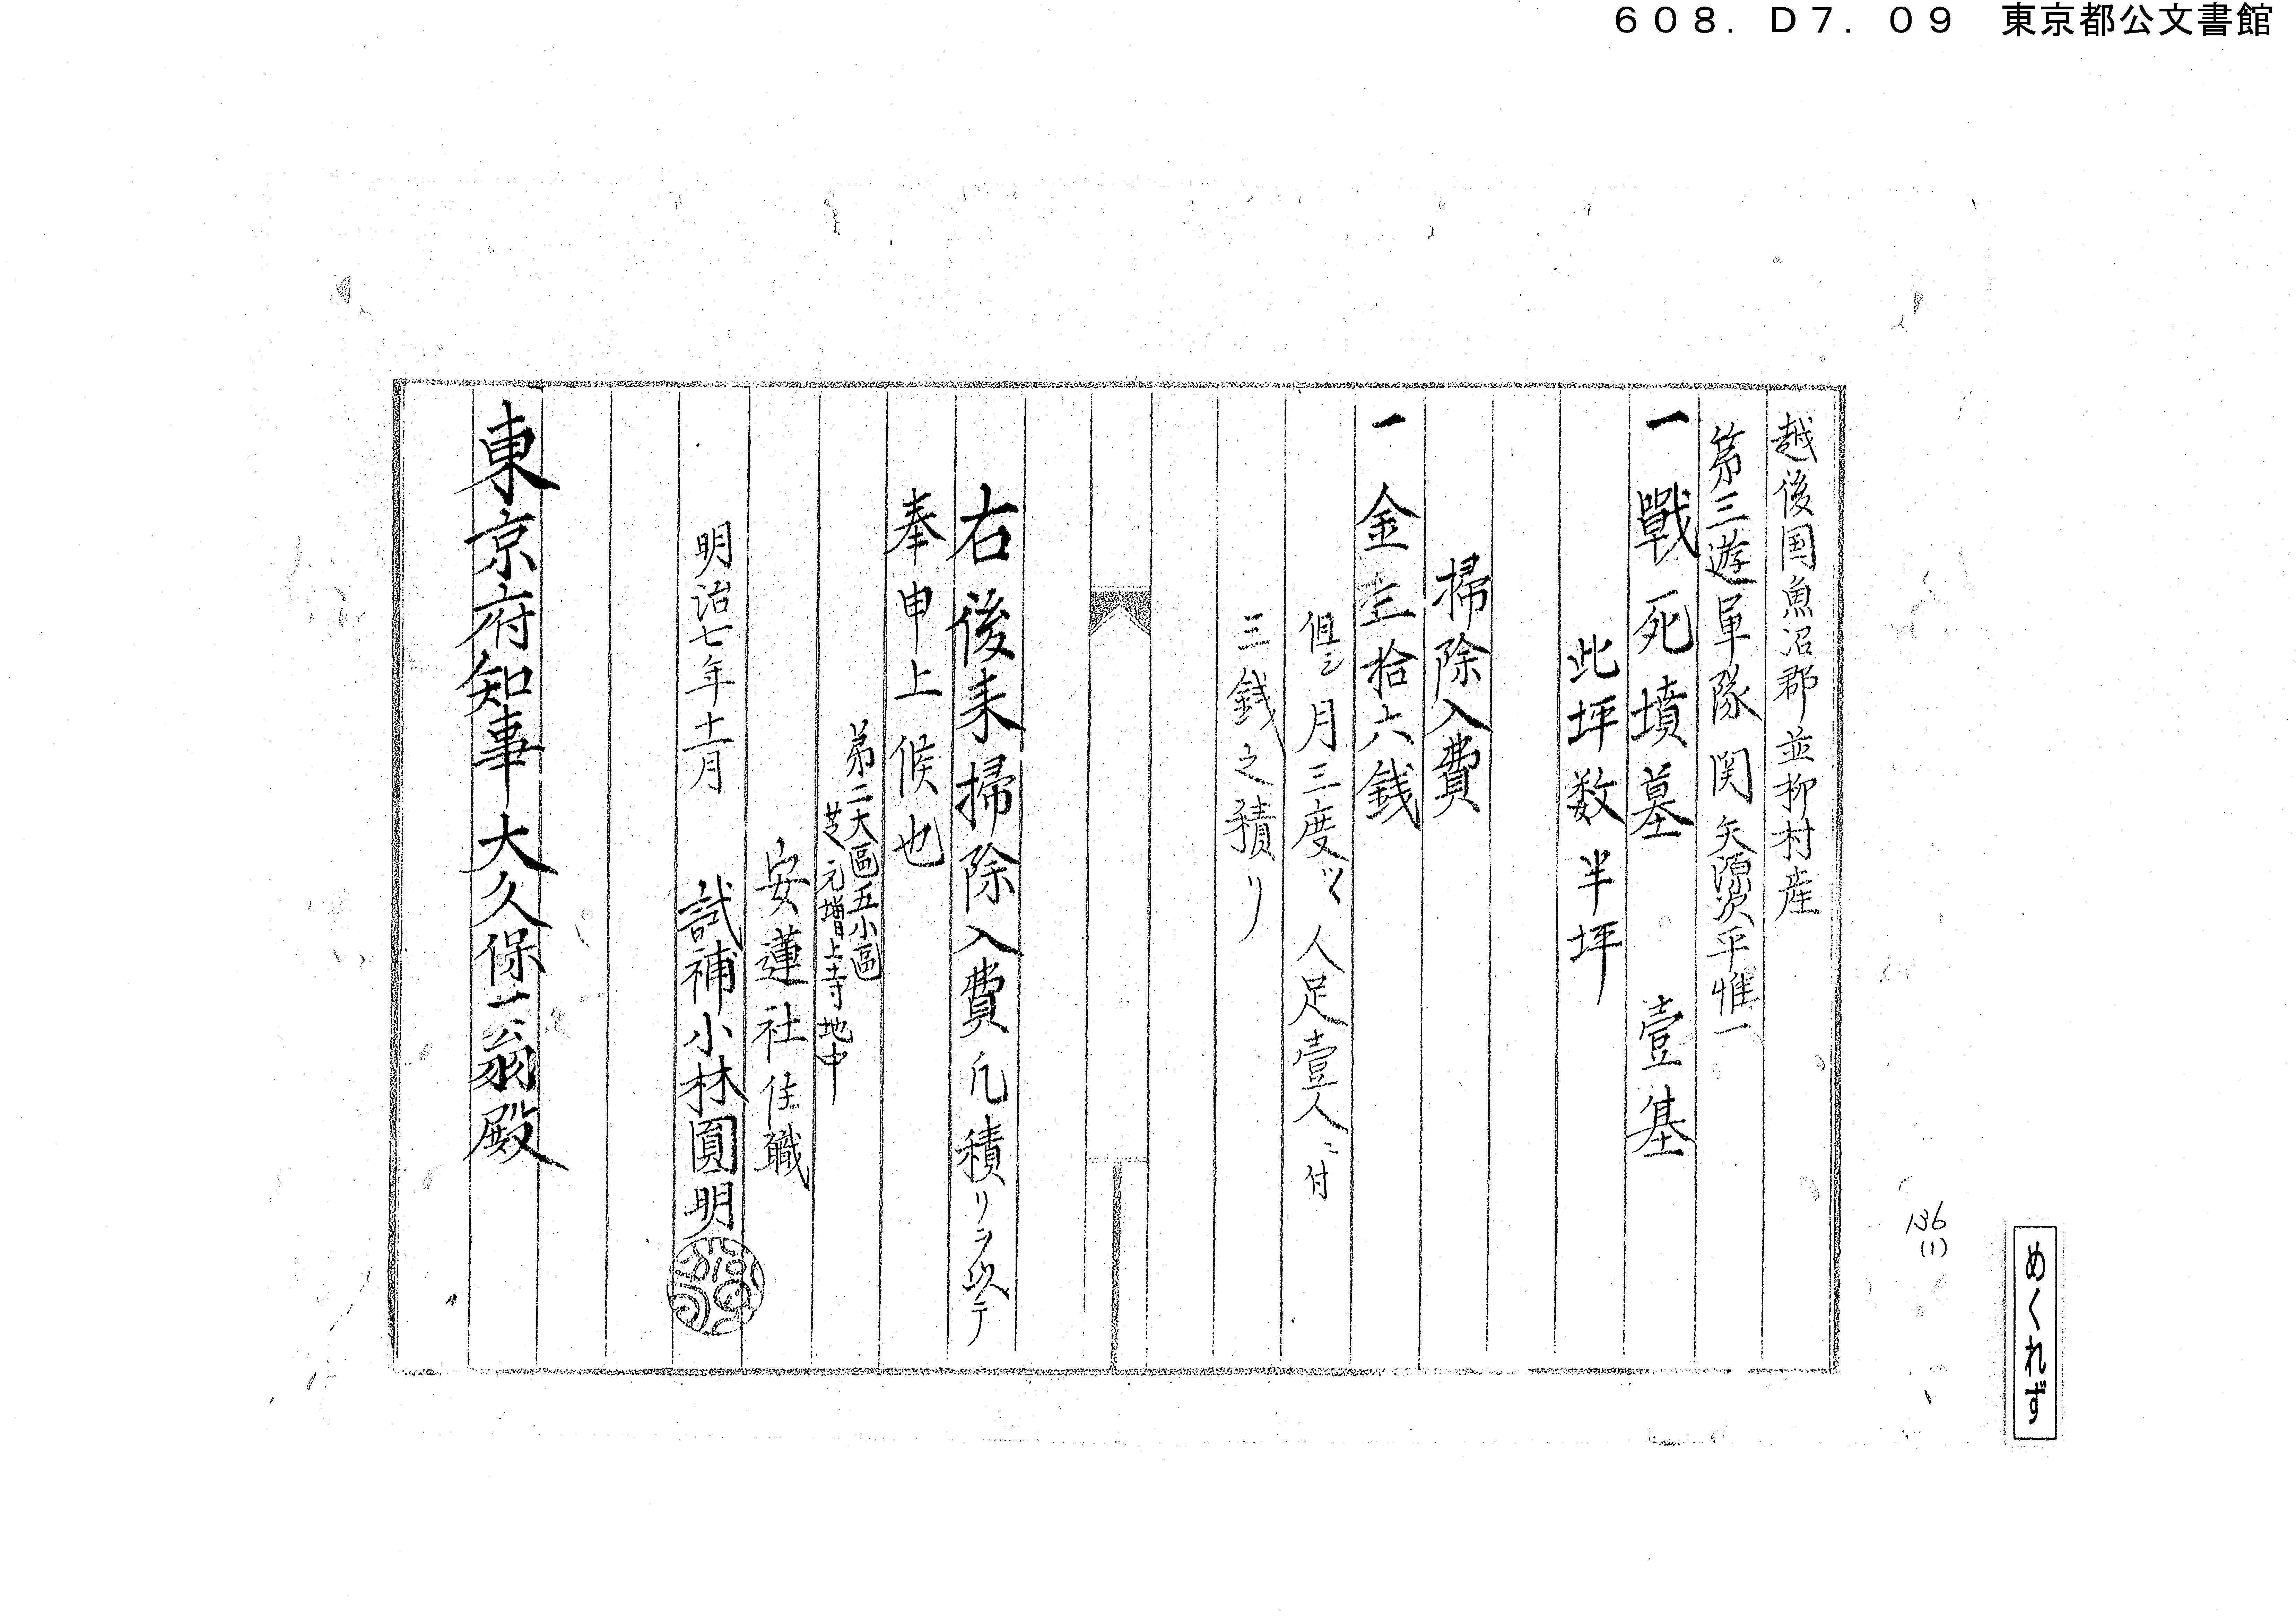 608.D7.09 東京都公文書館
越後国魚沼郡並柳村産
第三遊軍隊 関矢源次平惟一
一戰死墳墓 壹基
此坪数半坪
掃除入費
一金壹拾六錢
但シ月三度ツヽ人足壹人ニ付
三錢之積リ
右後来掃除入費凡積リヲ以テ
奉申上候也
第二大區五小區
芝元增上寺地中
安蓮社住職
明治七年十一月 試補小林圓明
東京府知事大久保一翁殿
136
(1)
めくれず